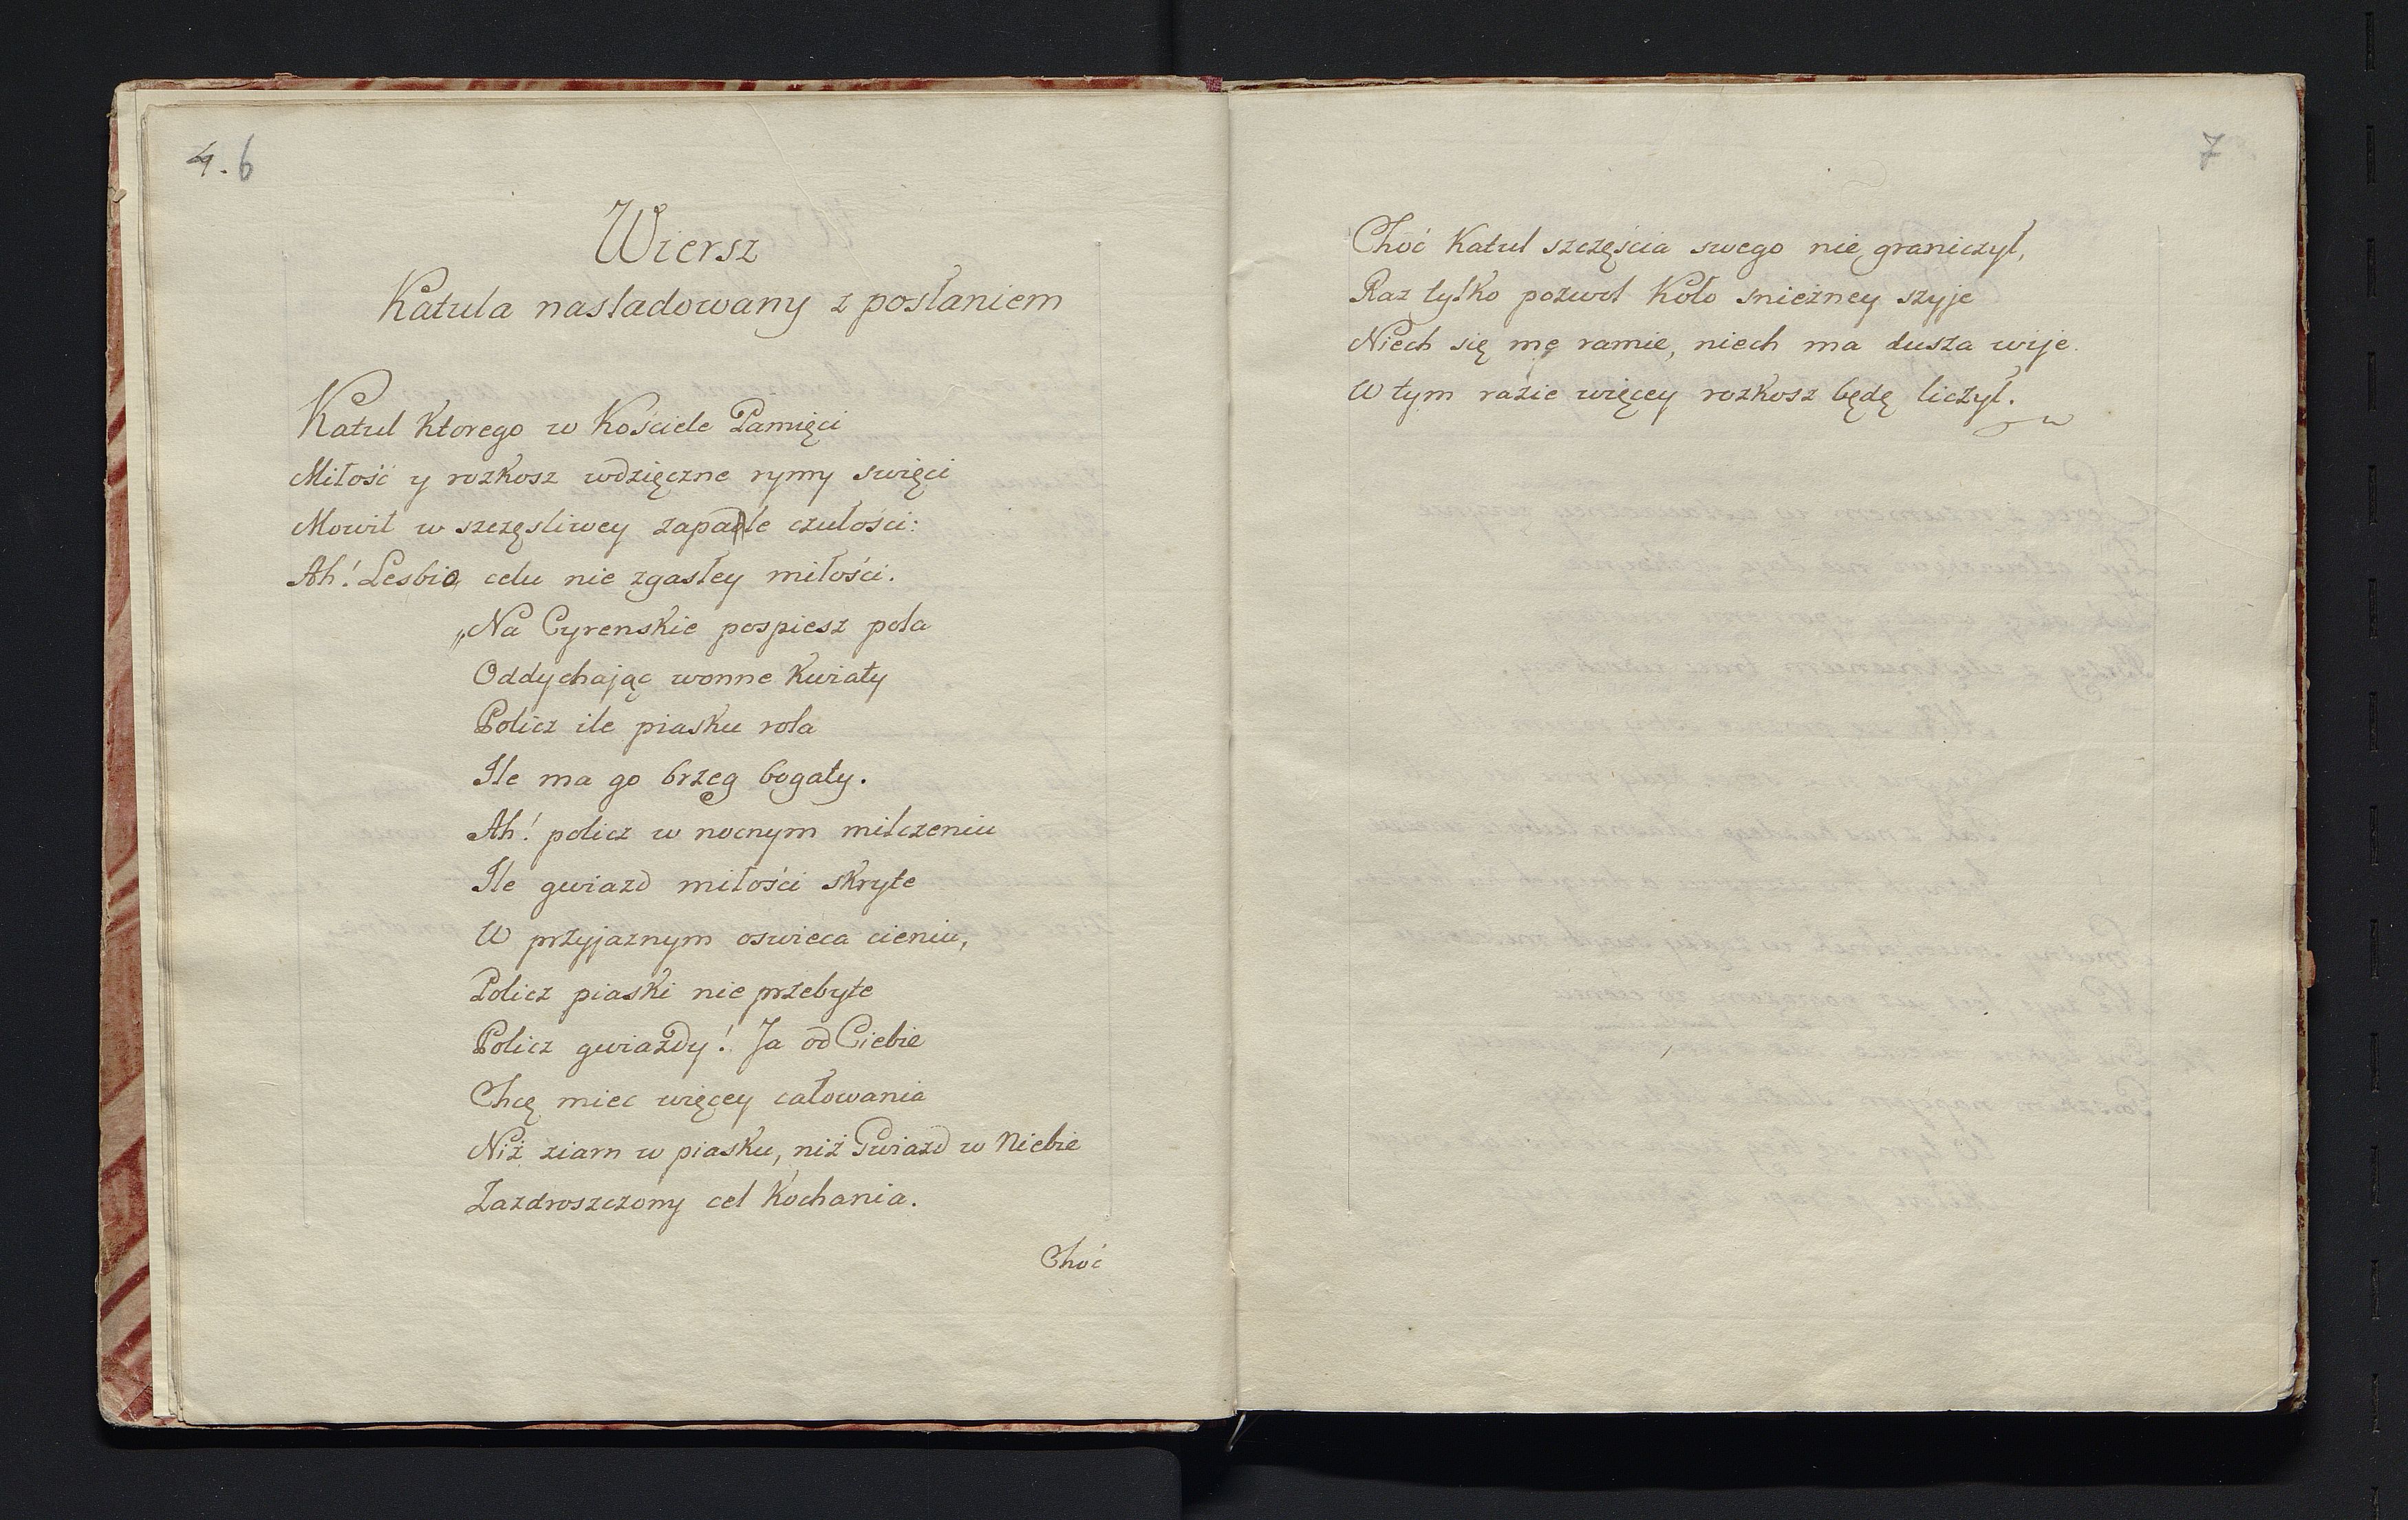 4. 6
Wiersz
Katula nasladowany z posłaniem
Katul ktorego w Kościele Pamięci
Miłość y rozkosz wdzięczne rymy swięci
Mowił w szczęsliwey zapale czułości:
Ah! Lesbio celu nie zgasłey miłości.
„Na Cyrenskie pospiesz pola
Oddychając wonne kwiaty
Policz ile piasku rola
Ile ma go brzeg bogaty.
Ah! policz w nocnym milczeniu
Ile gwiazd miłości skryte
W przyjaznym oswieca cieniu,
Policz piaski nie przebyte
Policz gwiazdy! Ja od Ciebie
Chcę miec więcey całowania
Niż ziarn w piasku, niż Gwiazd w Niebie
Zazdroszczony cel kochania.
Choć
7
Choć Katul szczęścia swego nie graniczył,
Raz tylko pozwol koło snieżney szyje
Niech się mę ramie, niech ma dusza wije.
W tym razie więcey rozkosz będę liczył.